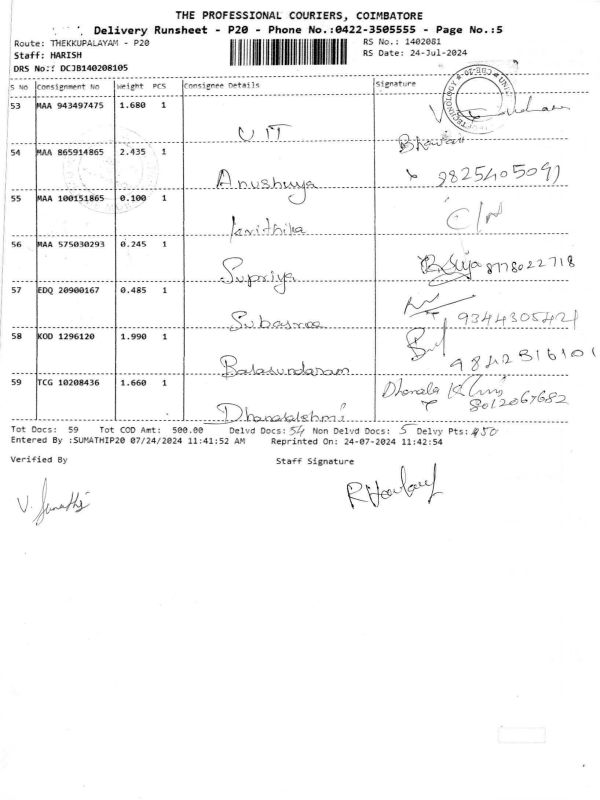 THE PROFESSIONAL COURIERS, COIMBATORE
Delivery Runsheet - P20 - Phone No.:0422-3505555 - Page No.:5
Route: THEKKUPALAYAM - P20 RS No.: 1402081
Staff: HARISH RS Date: 24-Jul-2024
DRS No.: DCJB140208105
S No Consignment No Weight PCS Consignee Details Signature
53 MAA 943497475 1.680 1
UIT
54 MAA 865914865 2.435 1 Bhavani
Anushuya 9825405091
55 MAA 100151865 0.100 1
Krithika
56 MAA 575030293 0.245 1
Supriya 8778022718
57 EDQ 20900167 0.485 1
Subasree 9344305421
58 KOD 1296120 1.990 1
Balasundaram 9842316101
59 TCG 10208436 1.660 1
Dhanalakshmi 8012067682
Tot Docs: 59 Tot COD Amt: 500.00 Delvd Docs: 54 Non Delvd Docs: 5 Delvy Pts: 50
Entered By :SUMATHIP20 07/24/2024 11:41:52 AM Reprinted On: 24-07-2024 11:42:54
Verified By Staff Signature
V. Sumathi